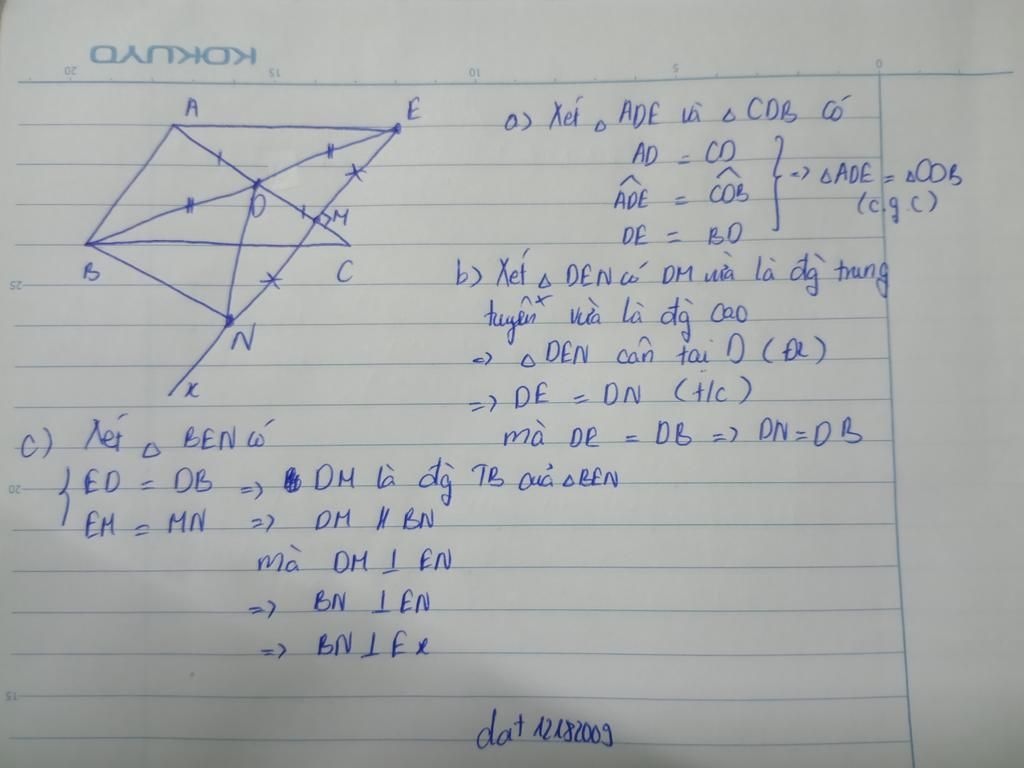 KOKUYO
20 15 10 5 0
A
E
D
M
B
C
N
x
a) Xét △ ADE và △ CDB có
AD = CD
ADE^ = CDB^ } => △ADE = △CDB
(c.g.c)
DE = BD
b) Xét △ DEN có DM vừa là đg trung
tuyến vừa là đg cao
=> △ DEN cân tại D (đl)
=> DE = DN (t/c)
mà DE = DB => DN = DB
c) Xét △ BEN có
{ ED = DB => DM là đg TB của △BEN
EM = MN => DM // BN
mà DM ⊥ EN
=> BN ⊥ EN
=> BN ⊥ Ex
25
20
15
dat 12182009